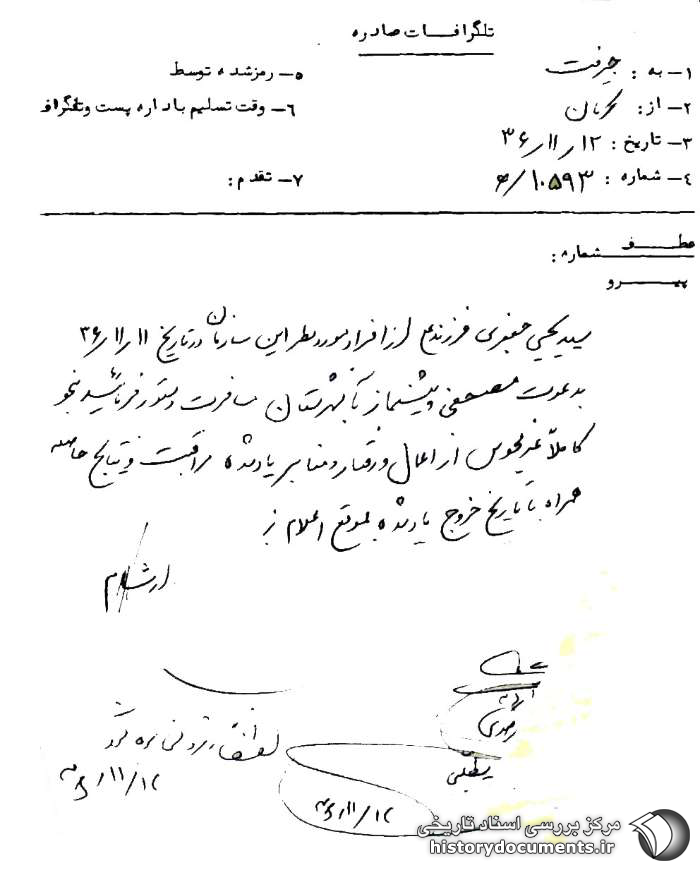 تلگرافات صادره
۱- به : جیرفت
۲- از : کرمان
۳- تاریخ : ۱۲ر۱۱ر۳۶
۴- شماره : ۱۰۵۹۳/ﻫ
۵- رمزشده توسط
۶- وقت تسلیم باداره پست وتلگراف
۷- تقدم :
عطف
شماره :
پیرو
سید یحیی جعفری فرزند از افراد مورد نظر این سازمان در تاریخ ۱۱ر۱۱ر۳۶
بدعوت پیشنماز بآن شهرستان مسافرت دستور فرمائید بنحو
کاملاً غیرمحسوس از اعمال و رفتار و منابر یاد شده مراقبت و نتایج حاصله
همراه با تاریخ خروج یاد شده بموقع اعلام
آرشام
۱۲/۱۱ر۳۶
۱۲/۱۱ر۳۶
مرکز بررسی اسناد تاریخی
historydocuments.ir